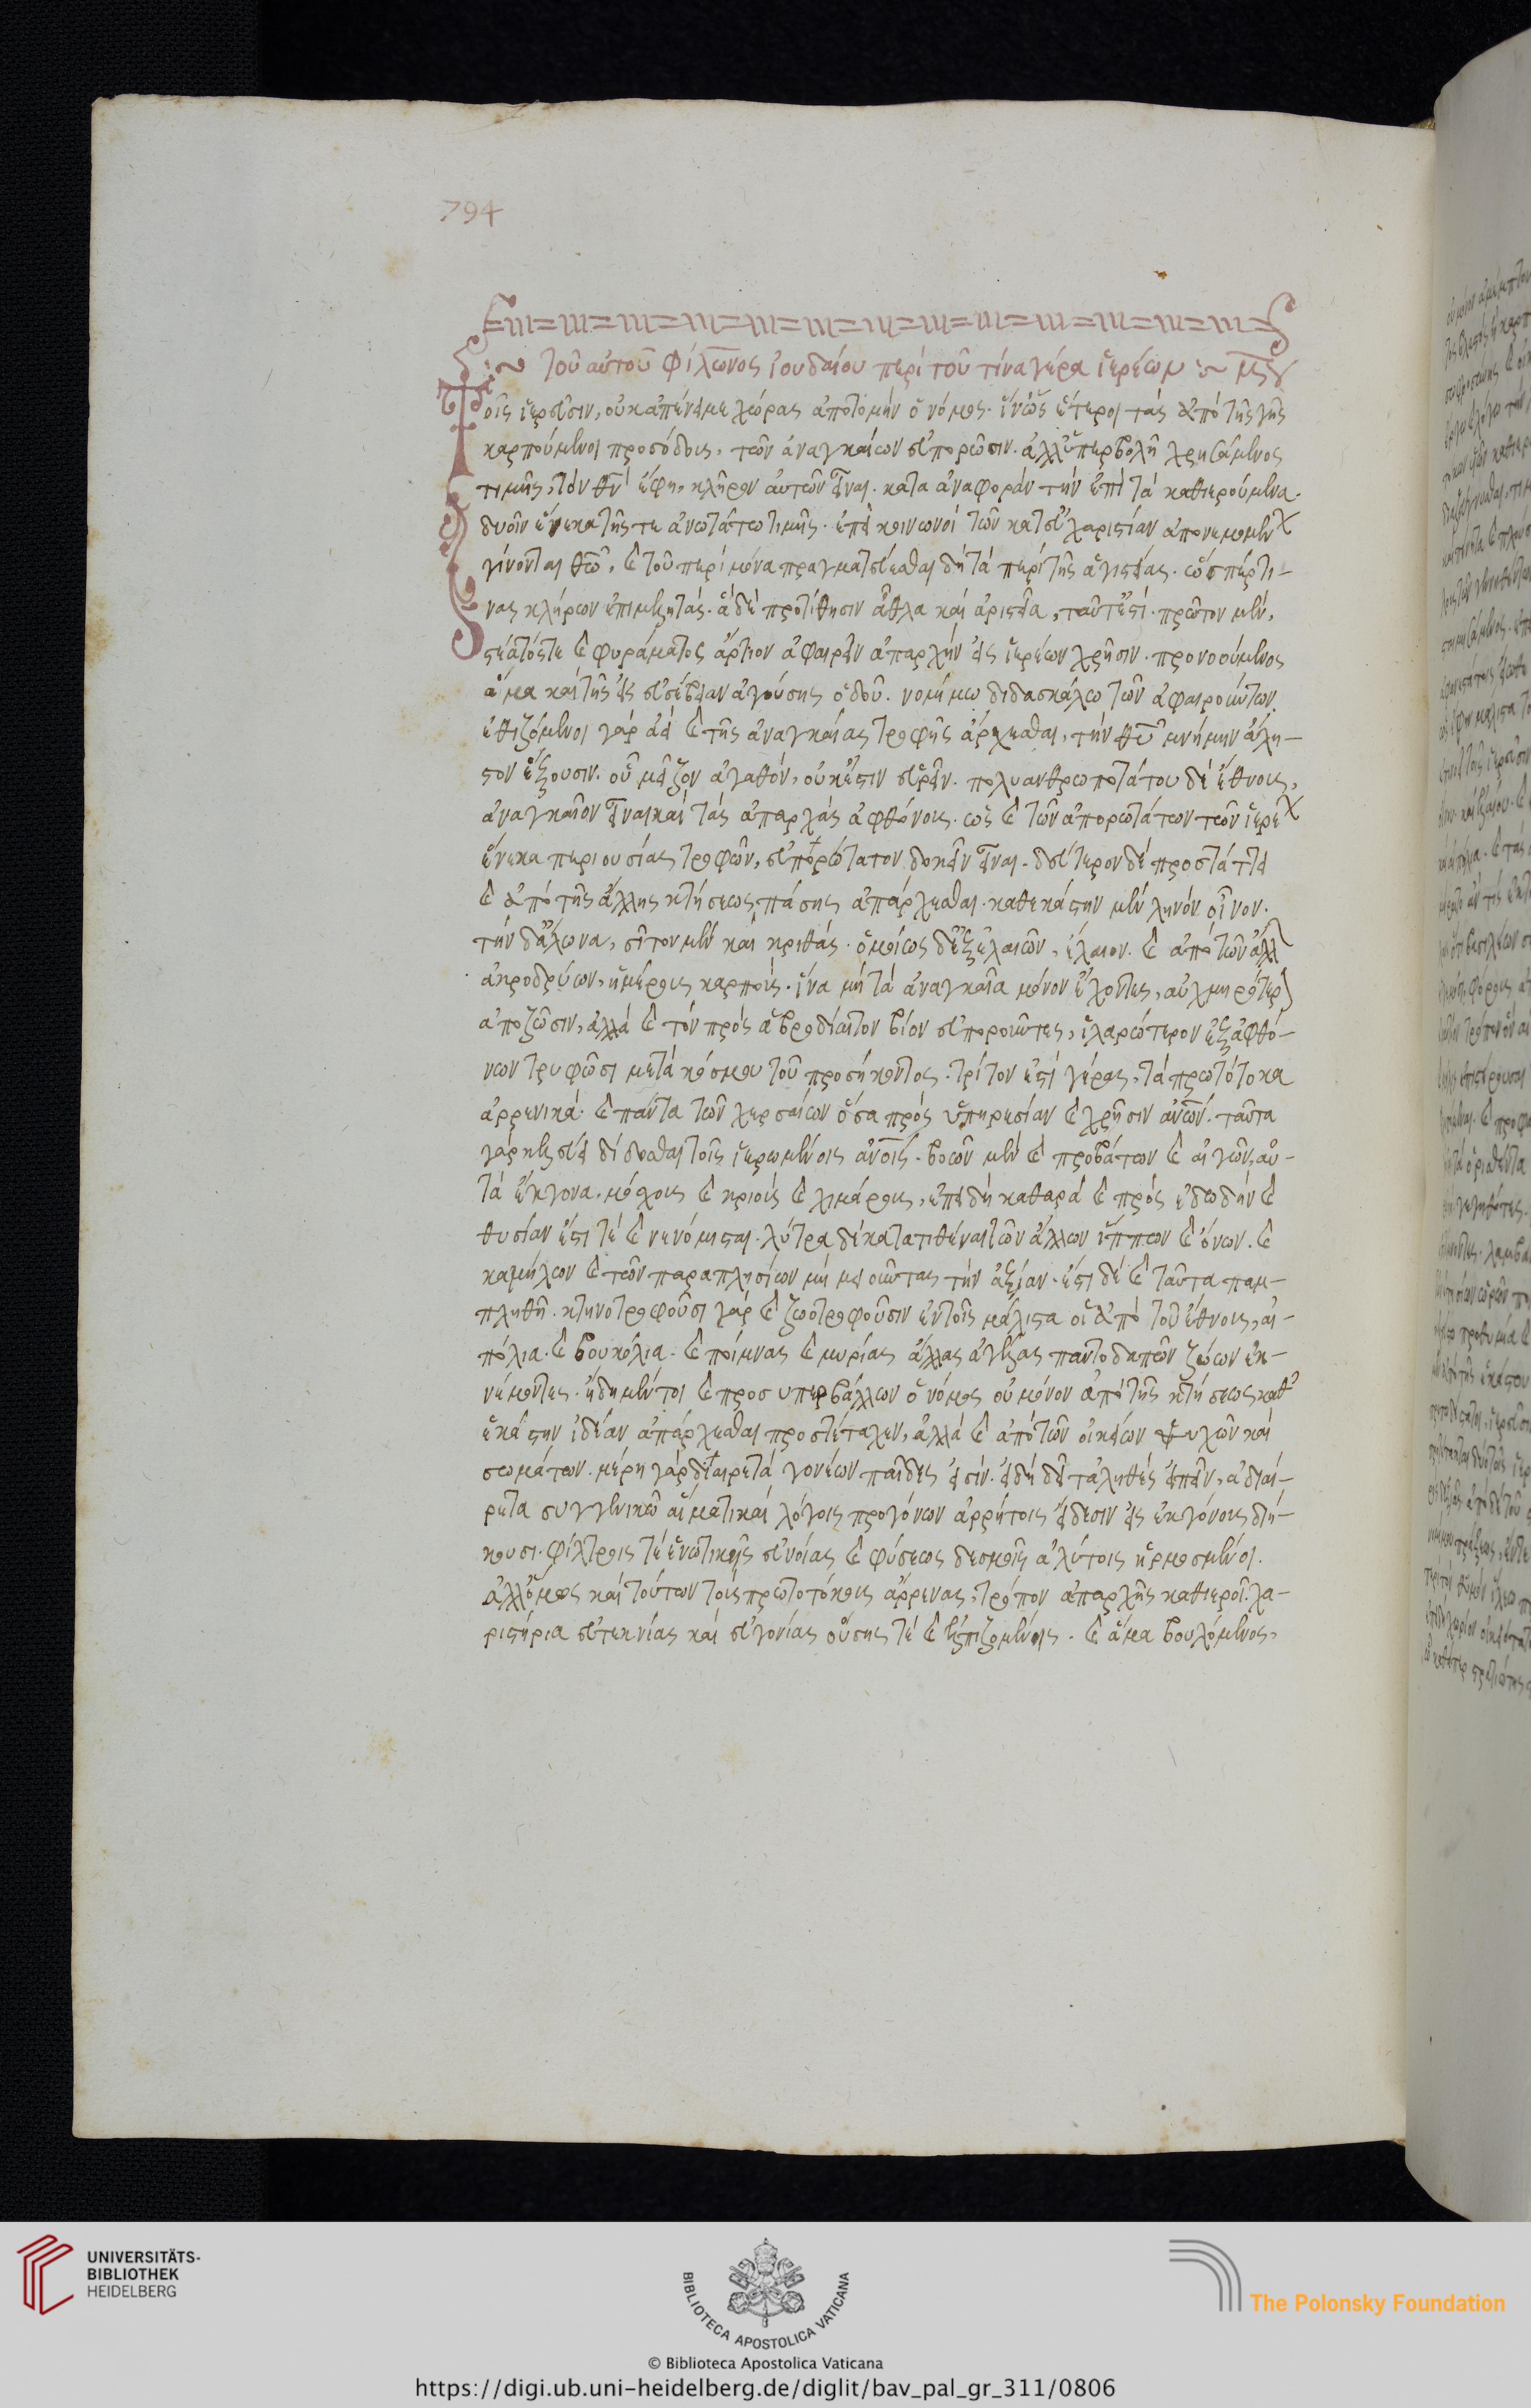 794
τοῦ αὐτοῦ Φίλωνος ἰουδαίου περὶ τοῦ τίνα γέρα ἱερέων
Τοῖς ἱερεῦσιν, οὐκ ἀπένειμε χώρας ἀποτομὴν ὁ νόμος. ἵν' ὡς ἕτεροι τὰς ἀπὸ τῆς γῆς
καρπούμενοι προσόδους, τῶν ἀναγκαίων εὐπορῶσιν. ἀλλ' ὑπερβολῆ χρησάμενος
τιμῆς, τὸν θν̄ ἔφη, κλῆρον αὐτῶν εἶναι. κατα ἀναφορὰν τὴν ἐπὶ τὰ καθιερούμενα.
δυοῖν ἕνεκα τῆς τε ἀνωτάτω τιμῆς. ἐπεὶ κοινωνοὶ τῶν κατ' εὐχαριστίαν ἀπονεμομένων
γίνονται θω̄, καὶ τοῦ περὶ μόνα πραγματεύεσθαι δὴ τὰ περὶ τῆς ἁγιστείας. ὥσπερ τι-
νας κλήρων ἐπιμελητάς. ἃ δὲ προτίθησιν ἆθλα καὶ ἀριστεῖα, ταῦτ' ἐστί. πρῶτον μὲν,
στέατός τε καὶ φυράματος ἄρτιον ἀφαιρεῖν ἀπαρχὴν εἰς ἱερέων χρῆσιν. προνοούμενος
ἅμα καὶ τῆς εἰς εὐσέβειαν ἀγούσης ὁδοῦ. νομίμω διδασκάλω τῶν ἀφαιρούντων.
ἐθιζόμενοι γὰρ ἀεὶ καὶ τῆς ἀναγκαίας τροφῆς ἄρχεσθαι, τὴν θῡ μνήμην ἄλη-
στον ἕξουσιν. οὗ μεῖζον ἀγαθὸν, οὐκ ἔστιν εὑρεῖν. πολυανθρωποτάτου δὲ ἔθνους,
ἀναγκαῖον εἶναι καὶ τὰς ἀπαρχὰς ἀφθόνους. ὡς καὶ τῶν ἀπορωτάτων τῶν ἱερέων
ἕνεκα περιουσίας τροφῶν, εὐπορώτατον δοκεῖν εἶναι. δεύτερον δὲ προστάττει
καὶ ἀπὸ τῆς ἄλλης κτήσεως πάσης ἀπάρχεσθαι. καθ' ἑκάστην μὲν ληνὸν οἶνον.
τὴν δ' ἅλωνα, σῖτον μὲν καὶ κριθάς. ὁμοίως δ' ἐξ ἐλαιῶν, ἔλαιον. καὶ ἀπὸ τῶν ἄλλων
ἀκροδρύων, ἡμέρους καρπούς. ἵνα μὴ τὰ ἀναγκαῖα μόνον ἔχοντες, αὐχμηρότερον
ἀποζῶσιν, ἀλλὰ καὶ τὸν πρὸς ἁβροδίαιτον βίον εὐποροῦντες, ἱλαρώτερον ἐξ ἀφθό-
νων τρυφῶσι μετὰ κόσμου τοῦ προσήκοντος. τρίτον ἐστὶ γέρας, τὰ πρωτότοκα
ἀρρενικά. καὶ πάντα τῶν χερσαίων ὅσα πρὸς ὑπηρεσίαν καὶ χρῆσιν ἀνω̄ν. ταῦτα
γὰρ κελεύει δίδοσθαι τοῖς ἱερωμένοις ἀνοις̄. βοῶν μὲν καὶ προβάτων καὶ αἰγῶν, αὐ-
τὰ ἔκγονα. μόσχους καὶ κριοὺς καὶ χιμάρους, ἐπειδὴ καθαρὰ καὶ πρὸς ἐδωδὴν καὶ
θυσίαν ἐστί τε καὶ νενόμισται. λύτρα δὲ κατατιθέναι τῶν ἄλλων ἵππων καὶ ὄνων. καὶ
καμήλων καὶ τῶν παραπλησίων μὴ μειοῦντας τὴν ἀξίαν. ἔστι δὲ καὶ ταῦτα παμ-
πληθῆ. κτηνοτροφοῦσι γὰρ καὶ ζωοτροφοῦσιν ἐν τοῖς μάλιστα οἱ ἀπὸ τοῦ ἔθνους, αἰ-
πόλια. καὶ βουκόλια. καὶ ποίμνας καὶ μυρίας ἄλλας ἀγέλας παντοδαπῶν ζώων ἐκ-
νέμοντες. ἤδη μέντοι καὶ προσυπερβάλλων ὁ νόμος οὐ μόνον ἀπὸ τῆς κτήσεως καθ'
ἑκάστην ἰδέαν ἀπάρχεσθαι προστέταχεν, ἀλλὰ καὶ ἀπὸ τῶν οἰκείων ψυχῶν καὶ
σωμάτων. μέρη γὰρ διαιρετὰ γονέων παῖδες εἰσίν. εἰ δὴ δεῖ τἀληθὲς εἰπεῖν, ἀδιαί-
ρετα συγγενικῶ αἵματι καὶ λόγοις προγόνων ἀρρήτοις εἴδεσιν εἰς ἐκγόνους διή-
κουσι. φίλτροις τὲ ἑνωτικῆς εὐνοίας καὶ φύσεως δεσμοῖς ἀλύτοις ἡρμοσμένοι.
ἀλλ' ὅμως καὶ τούτων τοὺς πρωτοτόκους ἄρρενας, τρόπον ἀπαρχῆς καθιεροῖ. χα-
ριστήρια εὐτεκνίας καὶ εὐγονίας οὔσης τὲ καὶ ἐλπιζομένης. καὶ ἅμα βουλόμενος,
UNIVERSITÄTS-
BIBLIOTHEK
HEIDELBERG
BIBLIOTECA APOSTOLICA VATICANA
The Polonsky Foundation
© Biblioteca Apostolica Vaticana
https://digi.ub.uni-heidelberg.de/diglit/bav_pal_gr_311/0806